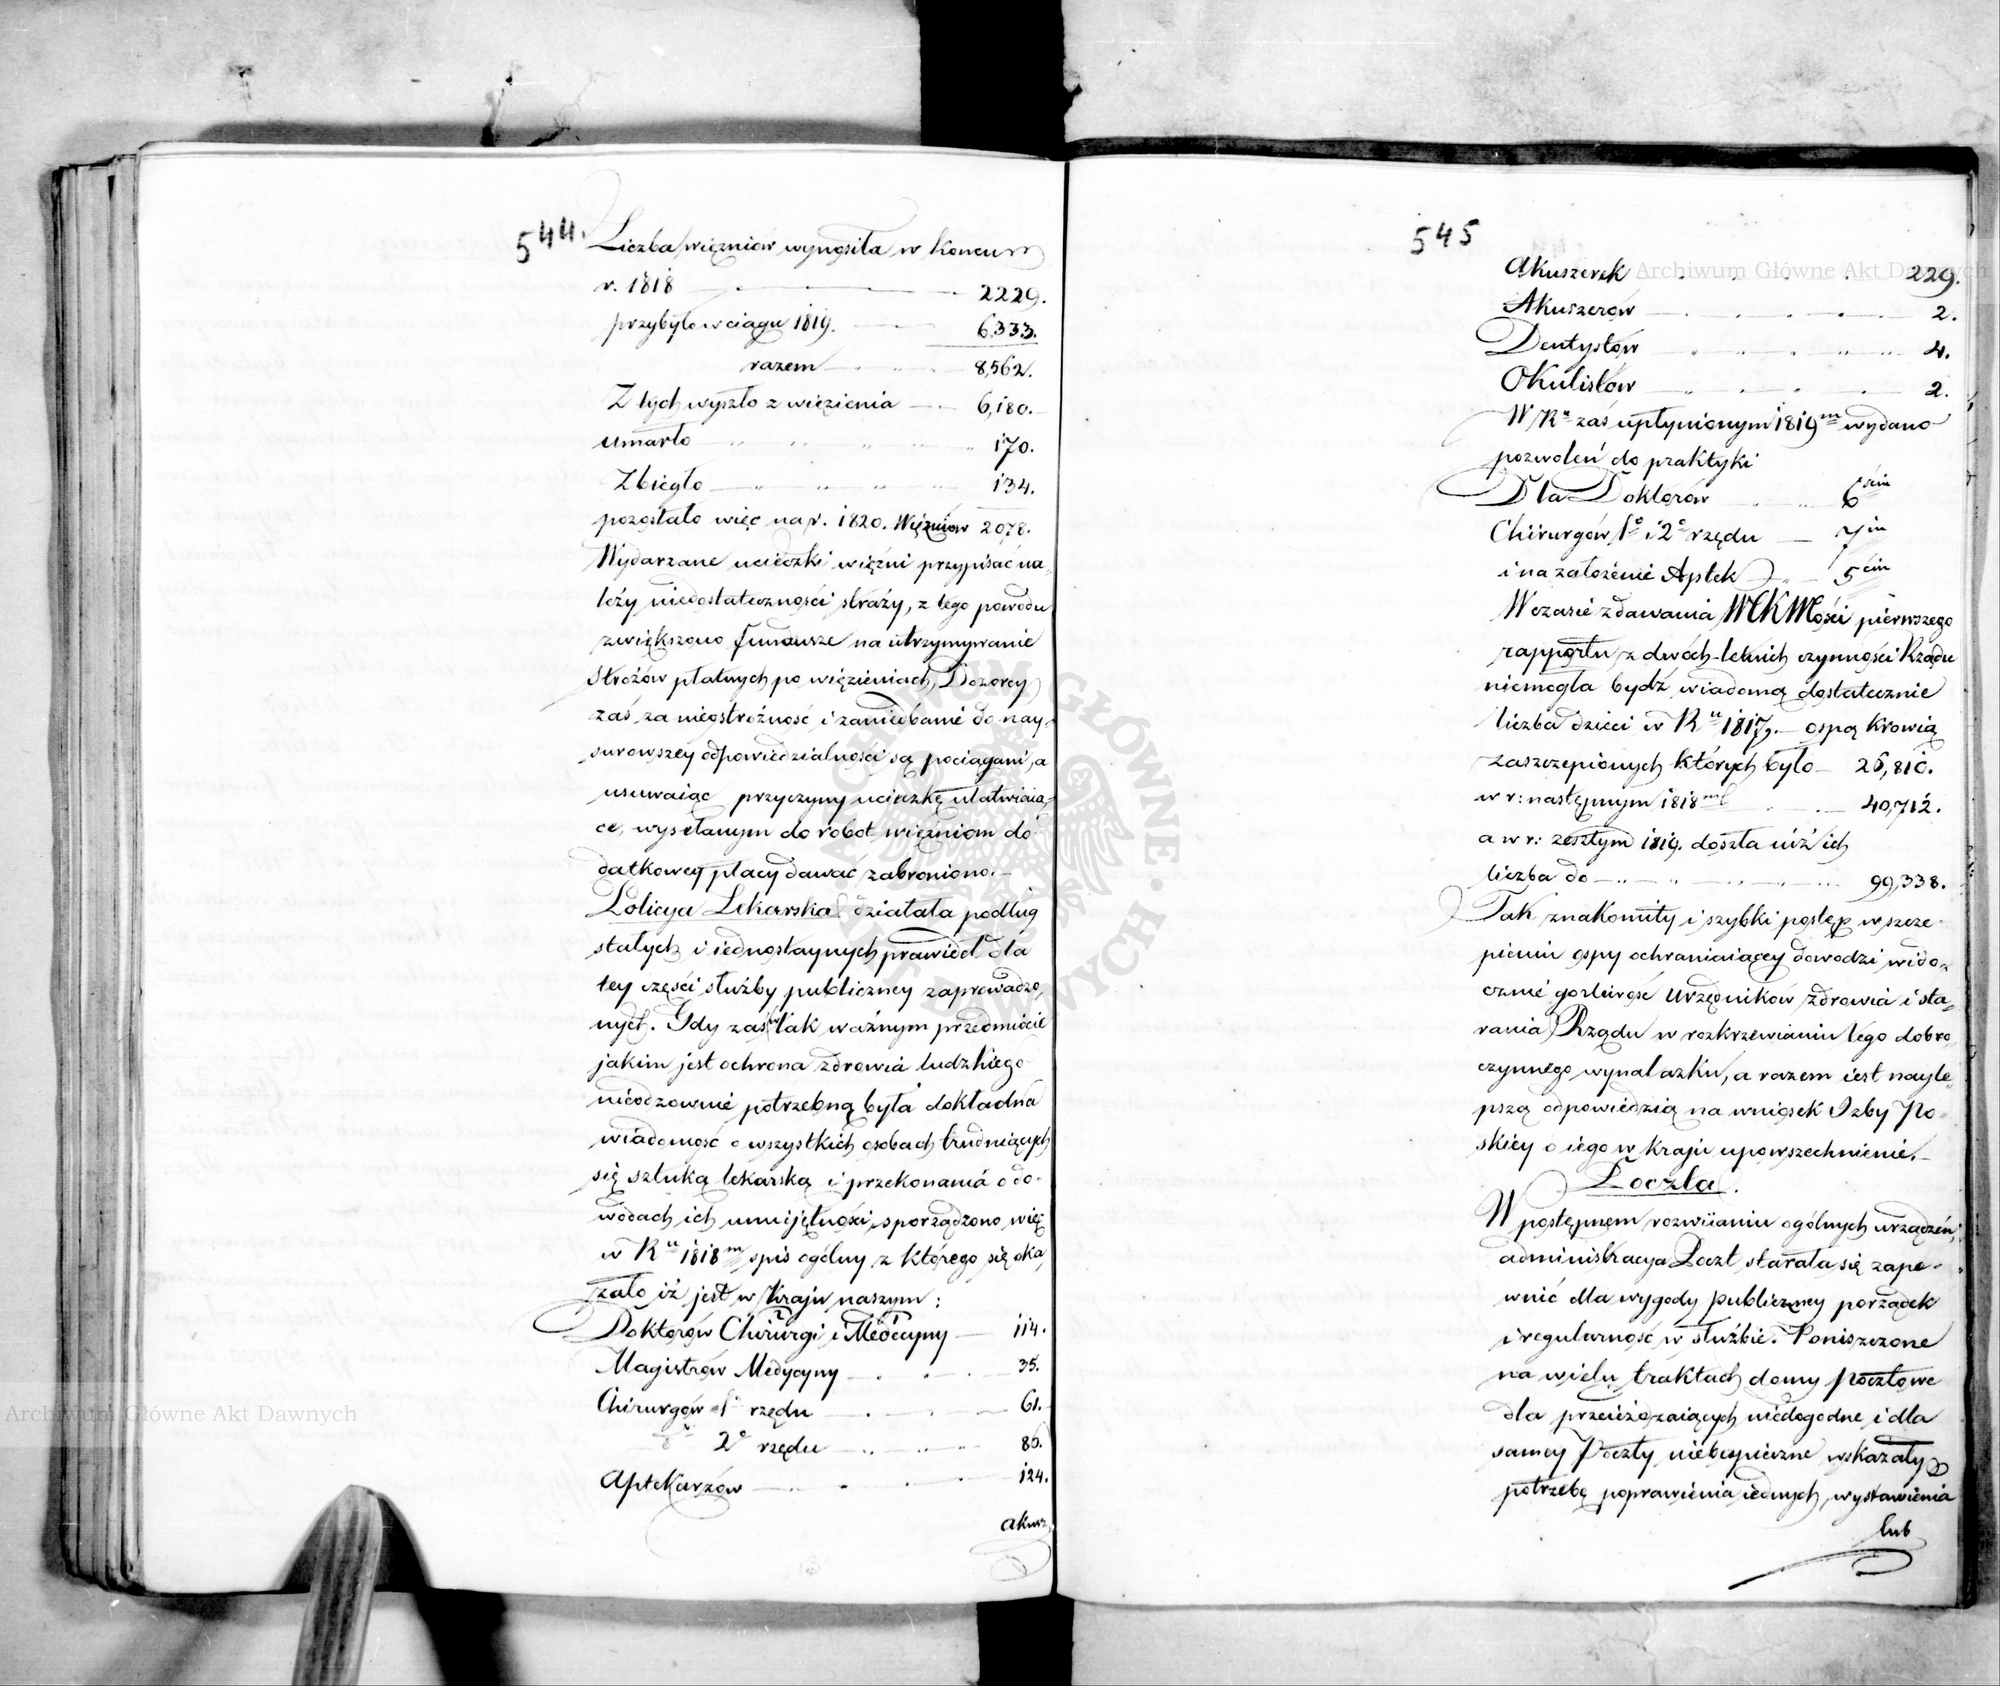 544.
Liczba więzniów wynosiła w koncu
r. 1818 2229.
przybyło w ciągu 1819. 6,333.
razem 8,562.
Z tych wyszło z więzienia 6,180.
umarło 170.
Zbiegło 134.
pozostało więc na r. 1820. Więzniow 2078.
Wydarzane ucieczki więźni przypisać na-
leży niedostateczności straży, z tego powodu
zwiększono fundusze na utrzymywanie
Stróżów płatnych po więzieniach, Dozorcy
zaś za nieostrożność i zaniedbanie do nay-
surowszey odpowiedzialności są pociągani, a
usuwaiąc przyczyny ucieczkę ułatwiaią-
ce, wysełanym do robot więzniom do-
datkowey płacy dawać zabroniono.
Policya Lekarska działała podług
stałych i iednostaynych prawideł dla
tey części służby publiczney zaprowadzo-
nych. Gdy zaś w tak ważnym przedmiocie
jakim jest ochrona zdrowia ludzkiego
nieodzownie potrzebną była dokładna
wiadomość o wszystkich osobach trudniących
się sztuką lekarską i przekonania o do-
wodach ich umiejętności, sporządzono więc
w Ru 1818m spis ogólny z którego się oka-
zało iż jest w Kraju naszym:
Doktorów Chirurgi i Medycyny 114.
Magistrów Medycyny 35.
Chirurgów 1o rzędu 61.
do 2o rzędu 80.
Aptekarzów 124.
akusz
545
Akuszerek 229.
Akuszerów 2.
Dentystów 4.
Okulistów 2.
W Ru zaś upłynionym 1819m wydano
pozwoleń do praktyki
Dla Doktorów 6ciu
Chirurgów 1o i 2o rzędu 7iu
i na założenie Aptek 5ciu
W czasie zdawania WCKMości pierwszego
rapportu z dwóch-letnich czynności Rządu
niemogła bydź wiadomą dostatecznie
liczba dzieci w Ru 1817. ospą krowią
zaszczepionych których było 25,810.
w r: następnym 1818m 40,712.
a w r: zeszłym 1819. doszła iuż ich
liczba do 99,338.
Tak znakomity i szybki postęp w szcze-
pieniu ospy ochraniaiącey dowodzi wido-
cznie gorliwość Urzędników Zdrowia i sta-
rania Rządu w rozkrzewianiu tego dobro-
czynnego wynalazku, a razem iest nayle-
pszą odpowiedzią na wniosek Izby Po-
skiey o iego w kraju upowszechnienie.
Poczta.
W postępnem rozwiianiu ogólnych urządzeń,
administracya Poczt starała się zape-
wnić dla wygody publiczney porządek
i regularność w służbie. Poniszczone
na wielu traktach domy pocztowe
dla przeieżdzaiących niedogodne, i dla
samey Poczty niebezpieczne wskazały
potrzebę poprawienia iednych, wystawienia
lub
Archiwum Główne Akt Dawnych
Archiwum Główne Akt Dawnych